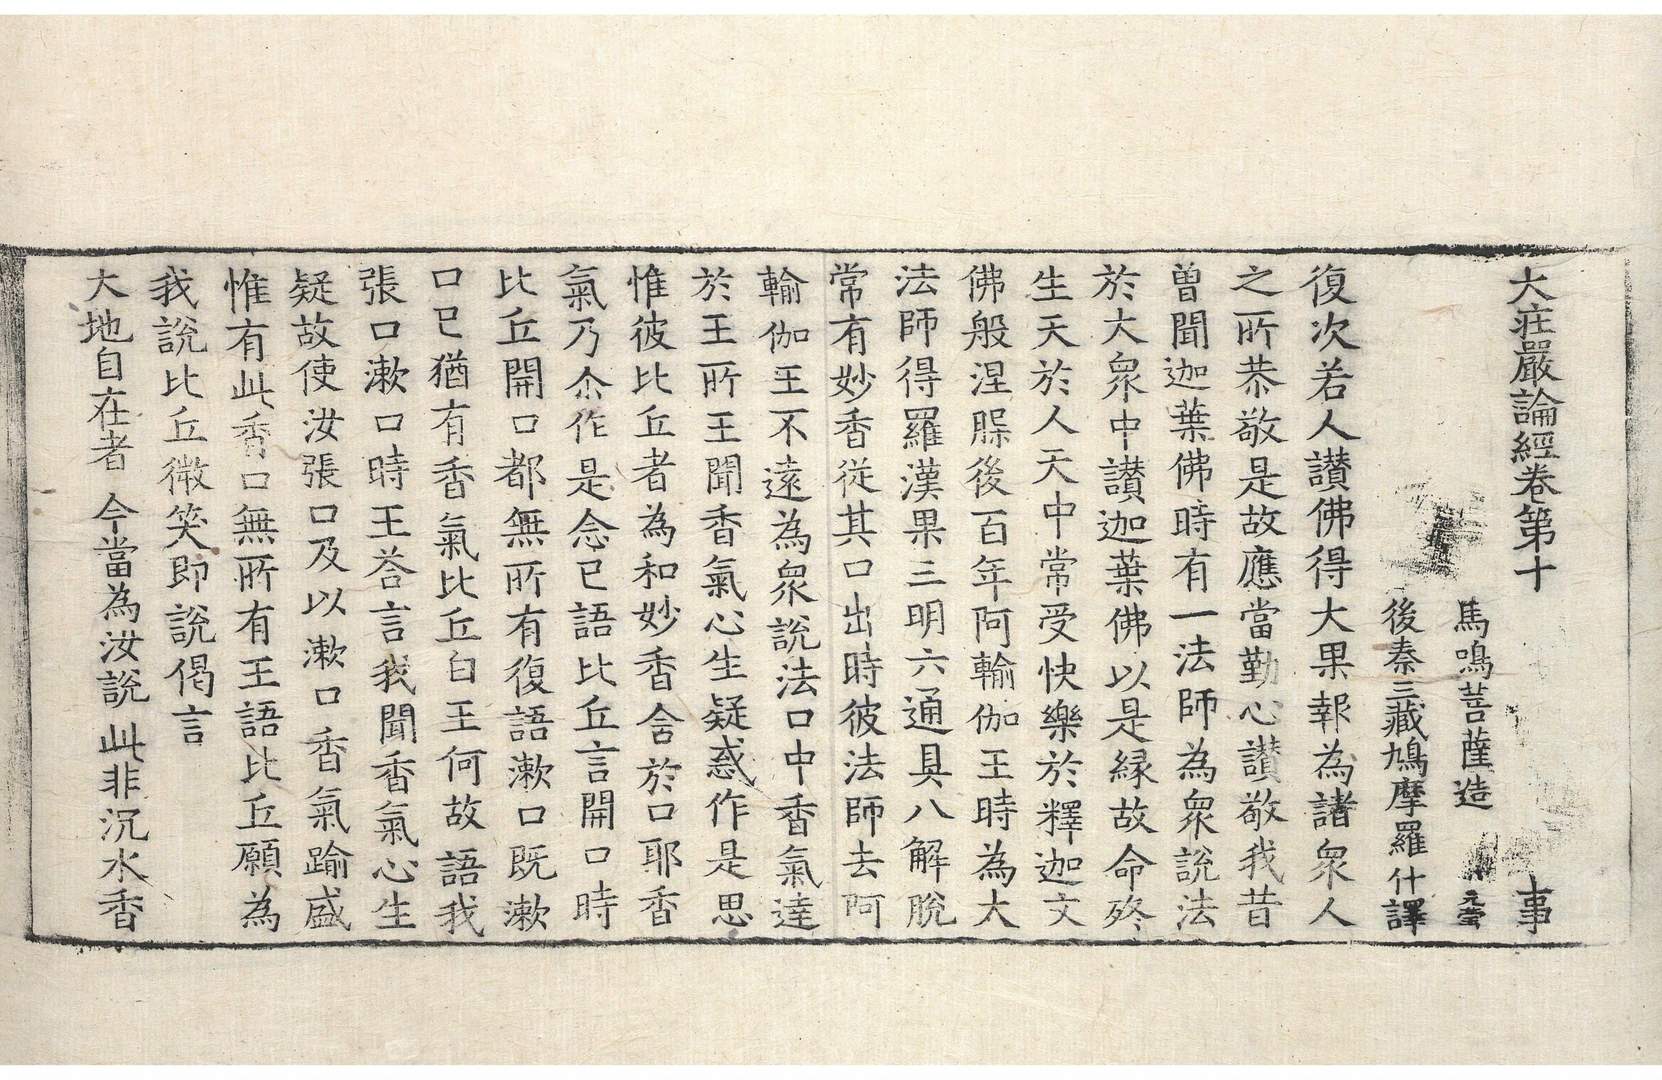 大莊嚴論經卷第十 事
馬鳴菩薩造
後秦三藏鳩摩羅什譯
復次若人讃佛得大果報為諸衆人
之所恭敬是故應當勤心讃敬我昔
曽聞迦葉佛時有一法師為衆說法
於大衆中讃迦葉佛以是縁故命終
生天於人天中常受快樂於釋迦文
佛般涅槃後百年阿輸伽王時為大
法師得羅漢果三明六通具八解脫
常有妙香從其口出時彼法師去阿
輸伽王不遠為衆說法口中香氣達
於王所王聞香氣心生疑惑作是思
惟彼比丘者為和妙香含於口耶香
氣乃尒作是念已語比丘言開口時
比丘開口都無所有復語漱口既漱
口已猶有香氣比丘白王何故語我
張口漱口時王荅言我聞香氣心生
疑故使汝張口及以漱口香氣踰盛
惟有此香口無所有王語比丘願為
我說比丘微笑即說偈言
大地自在者 今當為汝說 此非沉水香